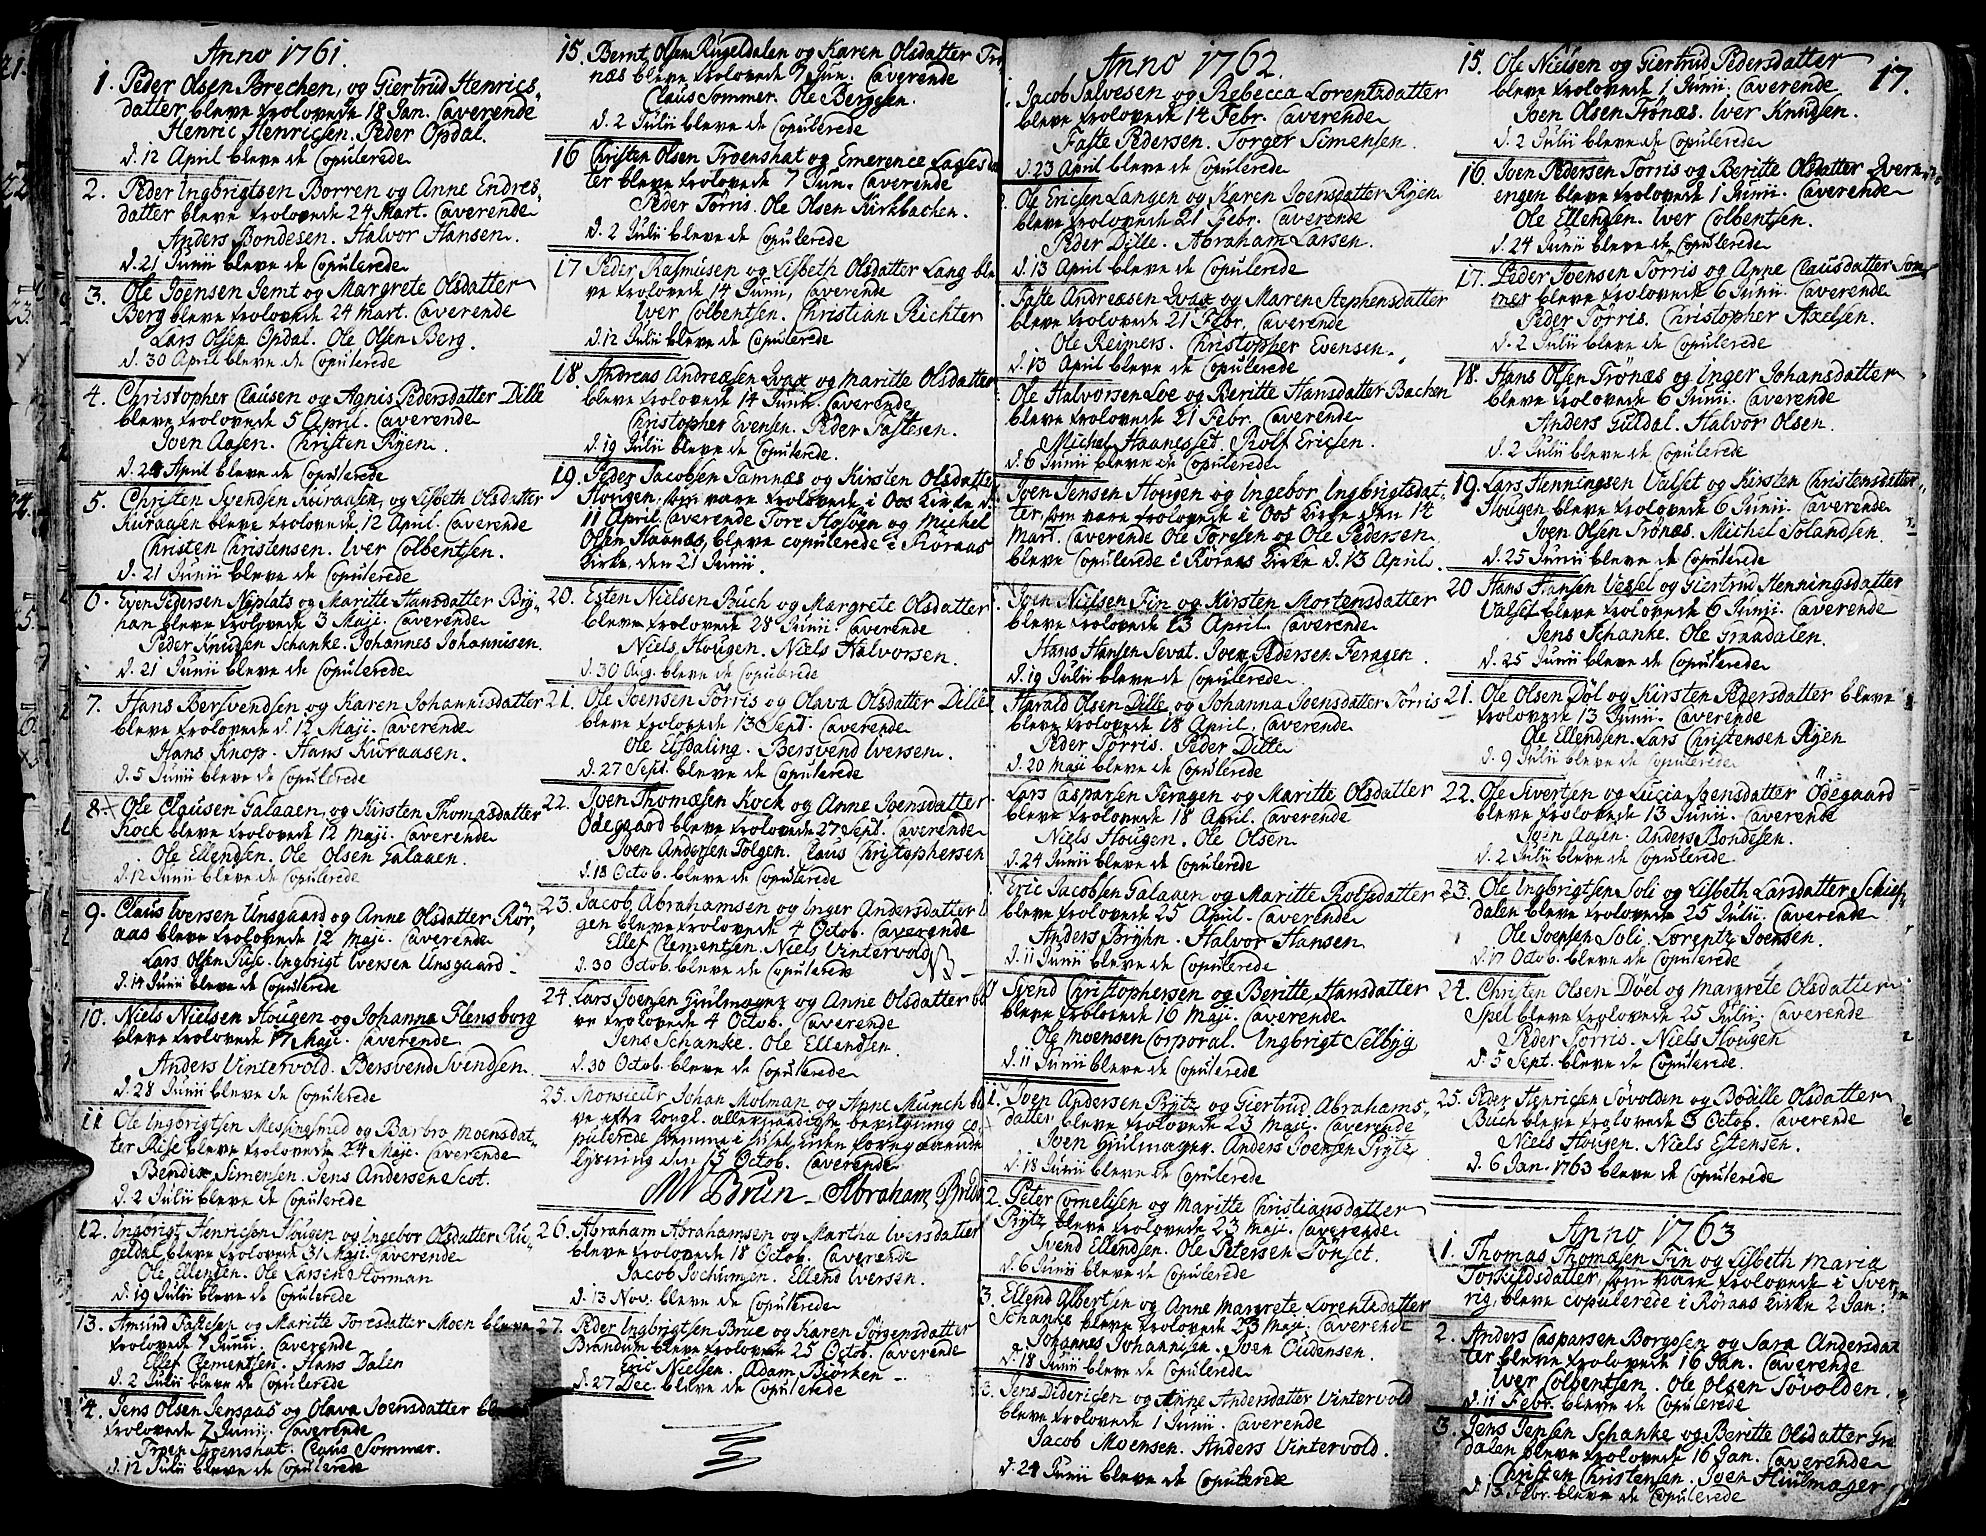 Anno 1761.
1. Peder Olsen Brechen, og Giertrud Henrics-
datter bleve trolovede 18 Jan. Caverende
Henric Henricsen. Peder Opdal.
d. 12 April bleve de Copulerede
2. Peder Ingbrigtsen Borren og Anne Endres-
datter bleve trolovede 24 Mart. Caverende
Anders Bondesen. Halvor Hansen.
d. 21 Junii bleve de Copulerede
3. Ole Joensen Jemt og Margrete Olsdatter
Berg bleve trolovede 24 Mart. Caverende
Lars Olsen Opdal. Ole Olsen Berg.
d. 30 April bleve de Copulerede
4. Christopher Clausen og Agnis Pedersdatter Dille
bleve trolovede 5 April. Caverende
Joen Aasen. Christen Ryen.
d. 24 April bleve de Copulerede
5. Christen Svendsen Kuraasen, og Lisbeth Olsdatter
Kuraasen bleve trolovede 12 April. Caverende
Christen Christensen. Iver Colbentsen.
d. 21 Junii bleve de Copulerede
6. Even Pedersen Nyplats og Maritte Hansdatter Bry-
han bleve trolovede 3 Maji. Caverende
Peder Knudsen Schanke. Johannes Johannisen.
d. 21 Junii bleve de Copulerede
7. Hans Bersvendsen og Karen Johannisdatter
bleve trolovede d. 12 Maji. Caverende
Hans Knop. Hans Kuraasen.
d. 5 Junii bleve de Copulerede
8. Ole Clausen Galaaen, og Kirsten Thomasdatter
Kock bleve trolovede 12 Maji. Caverende
Ole Ellendsen. Ole Olsen Galaaen.
d. 12 Junii bleve de Copulerede
9. Claus Iversen Unsgaard og Anne Olsdatter Rör-
aas bleve trolovede 12 Maji. Caverende
Lars Olsen Riise. Ingbrigt Iversen Unsgaard
d. 14 Junii bleve de Copulerede
10. Niels Nielsen Hougen og Johanna Flensborg
bleve trolovede 17 Maji. Caverende
Anders Vintervold. Bersvend Svendsen.
d. 28 Junii bleve de Copulerede
11 Ole Ingbrigtsen Messingsmed og Barbro Moensdat-
ter Riise bleve trolovede 24 Maji. Caverende
Bendix Simensen. Jens Andersen Scot.
d. 2 Julii bleve de Copulerede
12. Ingbrigt Henricsen Hougen og Ingebor Olsdatter Ru-
geldal bleve trolovede 31 Maji. Caverende
Ole Ellensen. Ole Larsen Horman
d. 19 Julii bleve de Copulerede
13. Amund Fastesen og Maritte Toresdatter Moen bleve
trolovede 7 Junii. Caverende
Ellef Clementsen. Hans Dalen
d. 2 Julii bleve de Copulerede
14. Jens Olsen Jensaas og Olava Joensdatter bleve
trolovede 7 Junii. Caverende
Troen Troenshat. Claus Sommer.
d. 12 Julii bleve de Copulerede
15. Bernt Olsen Rugeldalen og Karen Olsdatter Trö
næs bleve trolovede 7 Jun. Caverende
Claus Sommer. Ole Berggen.
d. 2 Julii bleve de Copulerede
16 Christen Olsen Troenshat og Emerence Laglesda
ter bleve trolovede 7 Jun. Caverende
Peder Törris. Ole Olsen Kirkbachen.
d. 2 Julii bleve de Copulerede
17 Peder Rasmusen og Lisbeth Olsdatter Lang ble
ve trolovede 14 Junii, Caverende
Iver Colbentsen. Christian Richter
d. 12 Julii bleve de Copulerede
18. Andreas Andreæsen Qvax og Maritte Olsdatter
bleve trolovede 14 Junii. Caverende
Christopher Evensen. Peder Fastesen.
d. 19 Julii bleve de Copulerede.
19. Peder Jacobsen Tamnæs og Kirsten Olsdatter
Hougen, som vare trolovede i Oos Kirke d.
11 April. Caverende Tore Hosöen og Michel
Olsen Haanæs, bleve copulerede i Röraas
Kirke den 21 Junii.
20. Esten Nielsen Buch og Margrete Olsdatter
bleve trolovede 28 Junii. Caverende
Niels Hougen. Niels Halvorsen.
d. 30 Aug. bleve de Copulerede
21. Ole Joensen Törris og Olava Olsdatter Dille
bleve trolovede 13 Sept. Caverende
Ole Elfdaling. Bersvend Iversen.
d. 27 Sept. bleve de Copulerede
22. Joen Thomæsen Kock og Anne Joensdatter
Ödegaard bleve trolovede 27 Sept. Caverende
Joen Andersen Tolgen. Claus Christophersen
d. 18 Octob. bleve de Copulerede
23. Jacob Abrahamsen og Inger Andersdatter
gen bleve trolovede 4 Octob. Caverende
Ellef Clementsen. Niels Vintervold
d. 30 Octob. bleve de Copulerede NB
24. Lars Joensen Hjulmager og Anne Olsdatter ble
ve trolovede 4 Octob. Caverende
Jens Schanke. Ole Ellendsen.
d. 30 Octob. bleve de Copulerede
25. Monsieur Johan Molman og Anne Munch ble
ve efter Kongl. allernaadigste bevilgning co-
pulerede hiemme i huset uden foregaaende
lysning den 15 Octob. Caverende
M Brun Abraham Bredal
26. Abraham Abrahamsen og Martha Iversdatter
bleve trolovede 18 Octob. Caverende
Jacob Jochumsen. Ellend Iversen.
d. 13 Nov. bleve de Copulerede
27. Peder Ingbrigtsen Brue og Karen Jörgensdatter
Brandum bleve trolovede 25 Octob. Caverende
Eric Nielsen. Adam Biörken
d. 27 Dec. bleve de Copulerede
Anno 1762.
Jacob Salvesen og Rebecca Lorentzdatter
bleve trolovede 14 Febr. Caverende
Faste Pedersen. Torger Simensen.
d. 23 April bleve de Copulerede
Ole Ericsen Langen og Karen Joensdatter Ryen
bleve trolovede 21 Febr. Caverende
Peder Dille. Abraham Larsen.
d. 13 April bleve de Copulerede
Faste Andreæsen Qvax og Maren Stephensdatter
bleve trolovede 21 Febr. Caverende
Ole Reimers. Christopher Evensen.
d. 13 April bleve de Copulerede
Ole Halvorsen Loe og Beritte Hansdatter Bachen
bleve trolovede 21 Febr. Caverende
Michel Haanesset. Rolf Ericsen.
d. 6 Junii bleve de Copulerede
Joen Jensen Hougen og Ingebor Ingbrigtsdat-
ter, som vare trolovede i Oos Kirke den 14
Mart. Caverende Ole Toresen og Ole Pedersen
bleve Copulerede i Röraas Kirke d. 13 April.
Joen Nielsen Fin og Kirsten Mortensdatter
bleve trolovede 13 April. Caverende
Hans Hansen Sevat. Joen Pedersen Feragen.
d. 19 Julii bleve de Copulerede
Harald Olsen Dille og Johanna Joensdatter Törris
bleve trolovede 18 April. Caverende
Peder Törris. Peder Dille
d. 20 Maji bleve de Copulerede
Lars Casparsen Feragen og Maritte Olsdatter
bleve trolovede 18 April. Caverende
Niels Hougen. Ole Olsen.
d. 24 Junii bleve de Copulerede
Eric Jacobsen Galaaen og Maritte Rolfsdatter
bleve trolovede 25 April. Caverende
Anders Bryhn. Halvor Hansen
d. 11 Junii bleve de Copulerede
Svend Christophersen og Beritte Hansdatter
bleve trolovede 16 Maji. Caverende
Ole Moensen Corporal. Ingbrigt Selbyg
d. 11 Junii bleve de Copulerede
1. Joen Andersen Prytz og Giertrud Abrahams-
datter bleve trolovede 23 Maji. Caverende
Joen Hjulmager. Anders Joensen Prytz
d. 18 Junii bleve de Copulerede
2. Peter Cornelisen og Maritte Christiansdatter
Prytz bleve trolovede 23 Maji. Caverende
Svend Ellendsen. Ole Petersen Tönset.
d. 6 Junii bleve de Copulerede
3. Ellend Albertsen og Anne Margrete Lorentzdatter
Schanke bleve trolovede 23 Maji. Caverende
Johannes Johannisen. Joen Eudensen.
d. 18 Junii bleve de Copulerede
3. Jens Didericsen og Anne Andersdatter Vintervold
bleve trolovede 1 Junii. Caverende
Jacob Moensen. Anders Vintervold.
d. 24 Junii bleve de Copulerede
17.
15. Ole Nielsen og Giertrud Pedersdatter
bleve trolovede 1 Junii. Caverende
Joen Olsen Trönæs. Iver Knudsen.
d. 2 Julii bleve de Copulerede
16. Joen Pedersen Törris og Beritte Olsdatter Qvern-
engen bleve trolovede 1 Junii. Caverende
Ole Ellendsen. Iver Colbentsen.
d. 24 Junii bleve de Copulerede
17. Peder Joensen Törris og Anne Clausdatter Som-
mer bleve trolovede 6 Junii. Caverende
Peder Törris. Christopher Axelsen.
d. 2 Julii bleve de Copulerede
18. Hans Olsen Trönæs og Inger Johansdatter
bleve trolovede 6 Junii. Caverende
Anders Guldal. Halvor Olsen.
d. 2 Julii bleve de Copulerede
19. Lars Henningsen Valset og Kirsten Christensdatter
Hougen bleve trolovede 6 Junii. Caverende
Joen Olsen Trönæs. Michel Tolandsen.
d. 25 Junii bleve de Copulerede
20 Hans Hansen Vessel og Giertrud Henningsdatter
Valset bleve trolovede 6 Junii. Caverende
Jens Schanke. Ole Graadalen.
d. 25 Junii bleve de Copulerede
21. Ole Olsen Döl og Kirsten Pedersdatter bleve
trolovede 13 Junii. Caverende
Ole Ellendsen. Lars Christensen Ryen
d. 9 Julii bleve de Copulerede
22. Ole Sivertsen og Lucia Joensdatter Ödegaard
bleve trolovede 13 Junii. Caverende
Joen Aasen. Anders Bondesen.
d. 2 Julii bleve de Copulerede
23. Ole Ingbrigtsen Soli og Lisbeth Larsdatter Schief-
dalen bleve trolovede 25 Julii. Caverende
Ole Joensen Soli. Lorentz Joensen.
d. 17 Octob. bleve de Copulerede
24. Christen Olsen Döel og Margrete Olsdatter
Spel bleve trolovede 25 Julii. Caverende
Peder Törris. Niels Hougen
d. 5 Sept. bleve de Copulerede
25. Peder Henricsen Sövolden og Bodille Olsdatter
Buch bleve trolovede 3 Octob. Caverende
Niels Hougen. Niels Estensen.
d. 6 Jan. 1763 bleve de Copulerede
Anno 1763
1. Thomas Thomæsen Fin og Lisbeth Maria
Torkildsdatter, som vare trolovede i Sver-
rig, bleve copulerede i Röraas Kirke 2 Jan:
2. Anders Casparsen Borgosen og Sara Andersdat
ter bleve trolovede 16 Jan. Caverende
Iver Colbentsen. Ole Olsen Sövolden.
d. 11 Febr. bleve de Copulerede
3. Jens Jensen Schanke og Beritte Olsdatter Gra
dalen bleve trolovede 16 Jan. Caverende
Christen Christensen. Joen Hiulmager
d. 13 Febr. bleve de Copulerede